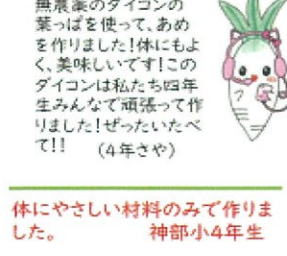 無農薬のダイコンの
葉っぱを使って、あめ
を作りました!体にもよ
く、美味しいです!この
ダイコンは私たち四年
生みんなで頑張って作
りました!ぜったいたべ
て!! (4年さや)
体にやさしい材料のみで作りま
した。 神部小4年生